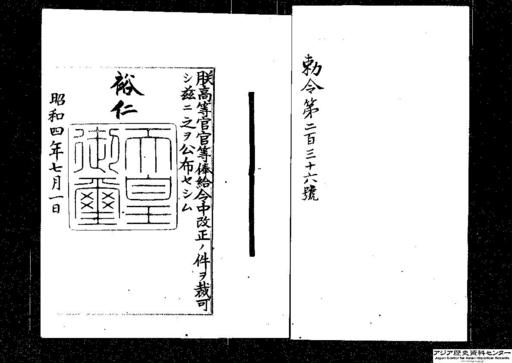 勅令第二百三十六號
朕高等官官等俸給令中改正ノ件ヲ裁可
シ茲ニ之ヲ公布セシム
裕仁
天皇
御璽
昭和四年七月一日
アジア歴史資料センター
Japan Center for Asian Historical Records